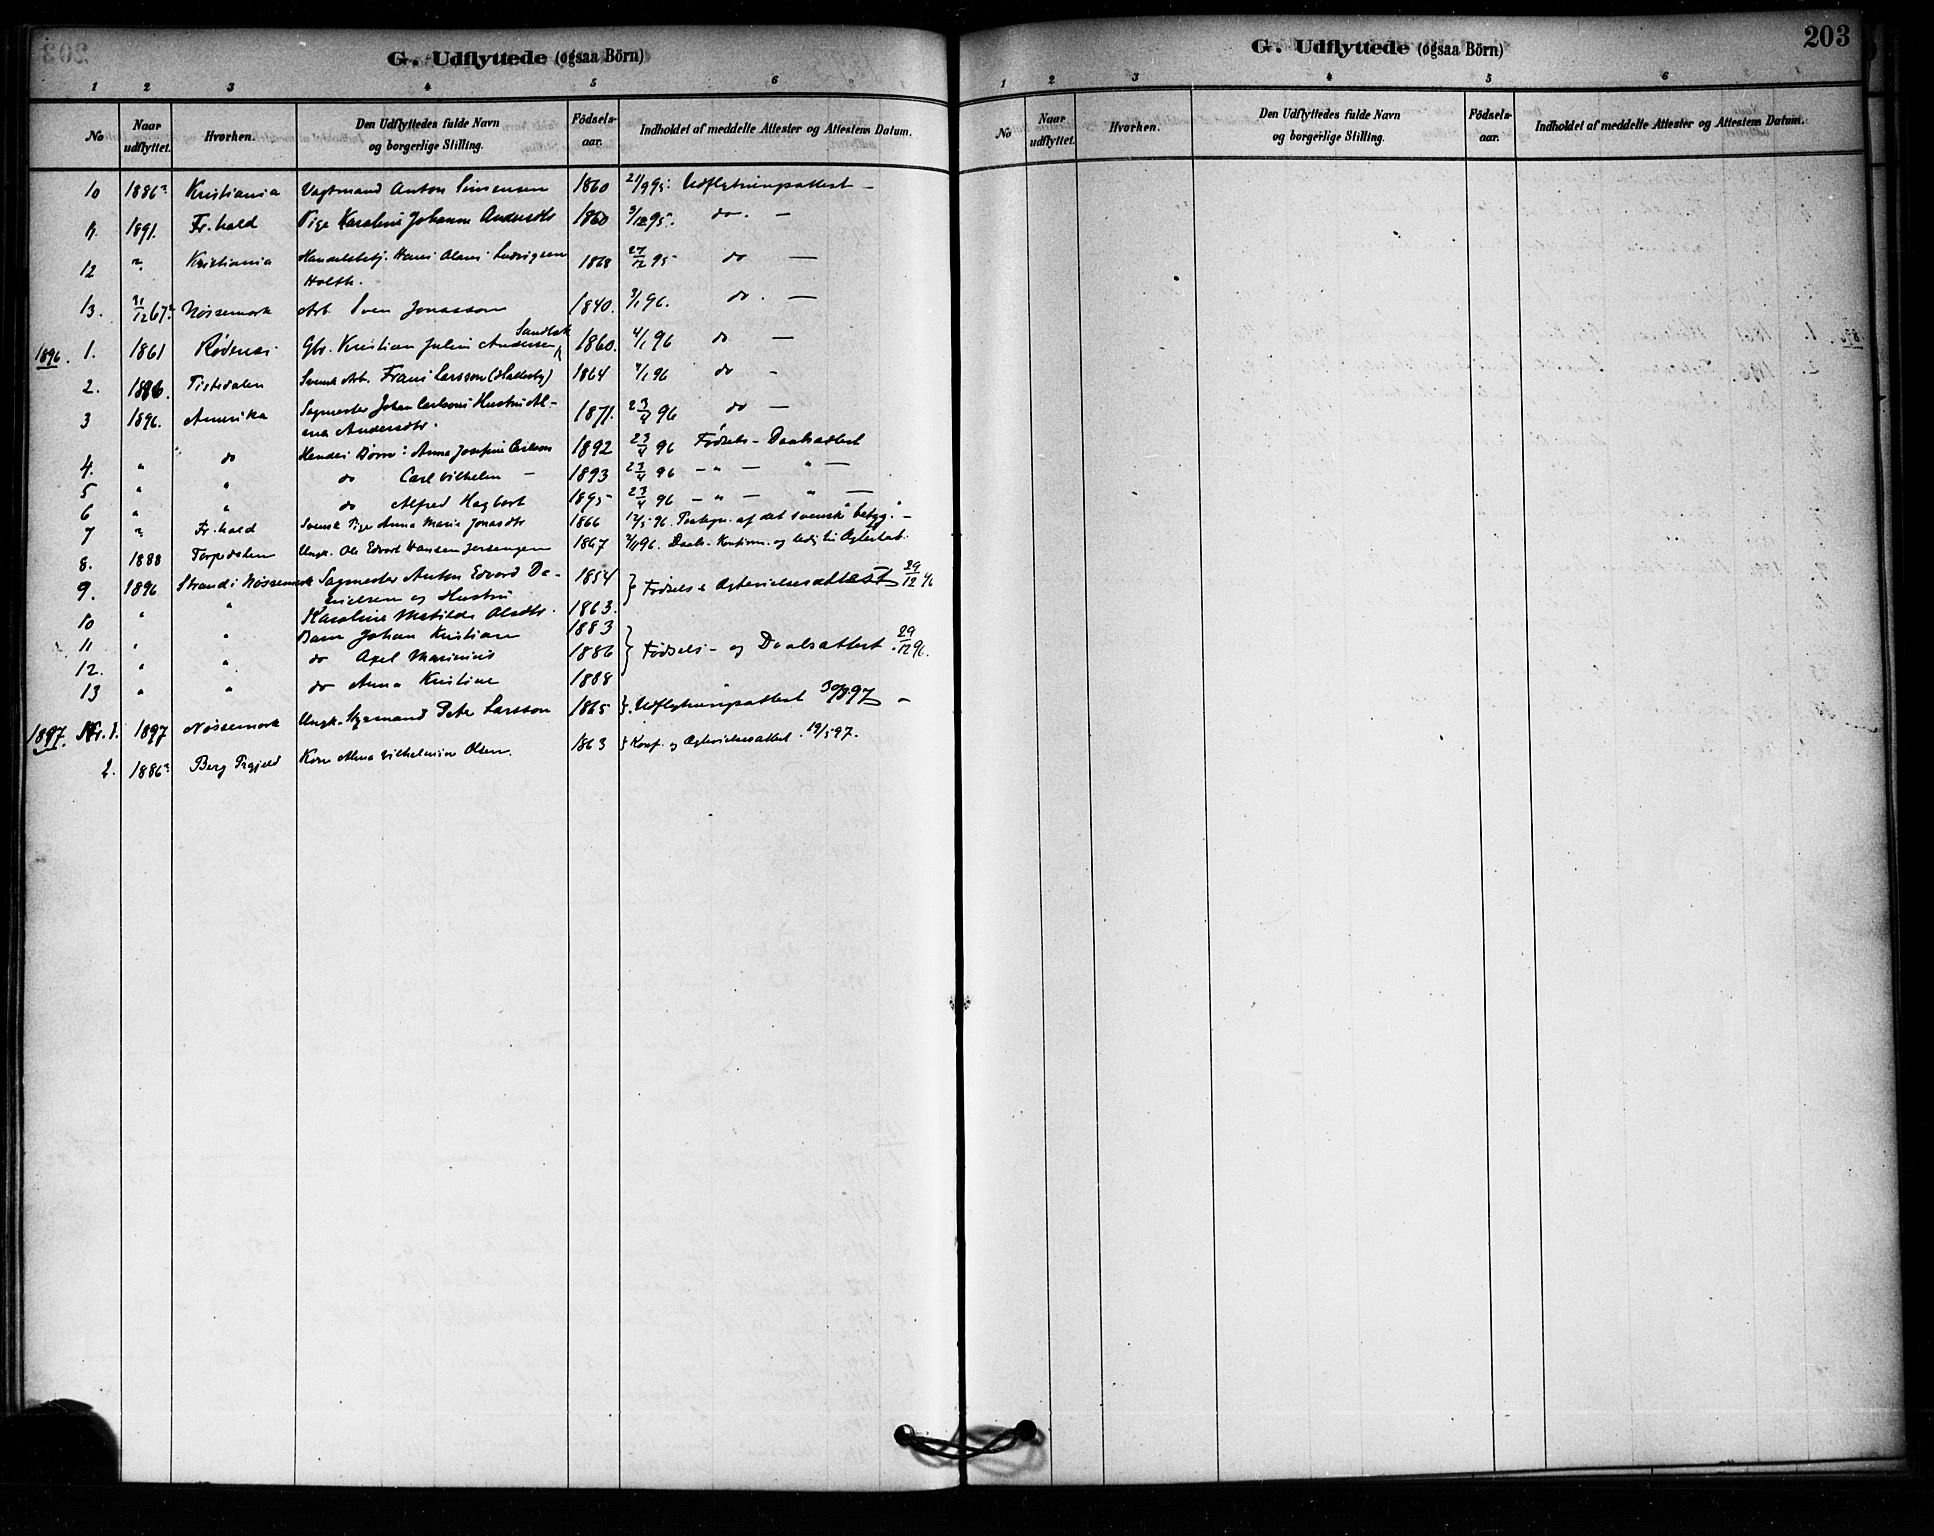 G. Udflyttede (ogsaa Börn)
1 2 3 4 5 6
No Naar udflyttet. Hvorhen. Den Udflyttedes fulde Navn og borgerlige Stilling. Födsels-aar. Indholdet af meddelte Attester og Attestens Datum.
10 1886? Kristiania Vagtmand Anton Simensen 1860 21/9 95: Udflytningsattest —
11. 1891. Fr.hald Pige Karoline Johanne Andersdtr 1860 9/12 95. do. —
12 " Kristiania Handelsbetj. Hans Olaus Ludvigsen 1868 27/12 95 do —
Holth.
13. 31/12 67? Nössemark Arb. Sven Jonasson 1840. 3/1 96. do. —
Sandbæk
1896. 1. 1861 Rödenes Gbr. Kristian Julius Andersen 1860. 4/1 96 do —
2. 1886. Tistedalen Svensk Arb. Frans Larsson (Hallesby) 1864 7/1 96 do -
3 1896. Amerika Sagmester Johan Carlsons Hustru Al- 1871. 23/4 96 do —
ma Andersdtr.
4. " do Hendes Börn: Anna Josefine Carlson 1892 23/4 96 Födsels- Daabsattest
5 " " do Carl Vilhelm — 1893 23/4 96 — " — " —
6 " " do Alfred Hagbart 1895 23/4 96 — " — " —
7 " Fr.hald Svensk Pige Anna Maria Jonasdtr 1866 12/5 96. Paategn. af det svenske betyg. —
8. 1888 Torpedalen Ungk. Ole Edvart Hansen 1867 96. Daabs- Konfirm. og ledig til Ægteskab.
9. 1896 Strand i Nössemark Sagmester Anton Edvard Da- 1854 } Födsels & Ægtevielsesattest 29/12 96
nielsen og Hustru
10 " " Karoline Matilde Olsdtr. 1863.
11 " " Barn Johan Kristian 1883
12. " " do Axel Marinius 1886 } Födsels- og Daabsattest 29/12 96.
13 " " do Anna Kristine 1888
1897. Nr. 1. 1897 Nössemark Ungk. Styrmand Peter Larsson 1865 }. Udflytningsattest 30/8 97 —
2. 1886? Berg Prgjeld Kone Alma Vilhelmine Olsen. 1863 } Konf. og Ægtevielsesattest. 19/5 97.
G. Udflyttede (ogsaa Börn)
203
1 2 3 4 5 6
No Naar udflyttet. Hvorhen. Den Udflyttedes fulde Navn og borgerlige Stilling. Födsels-aar. Indholdet af meddelte Attester og Attestens Datum.